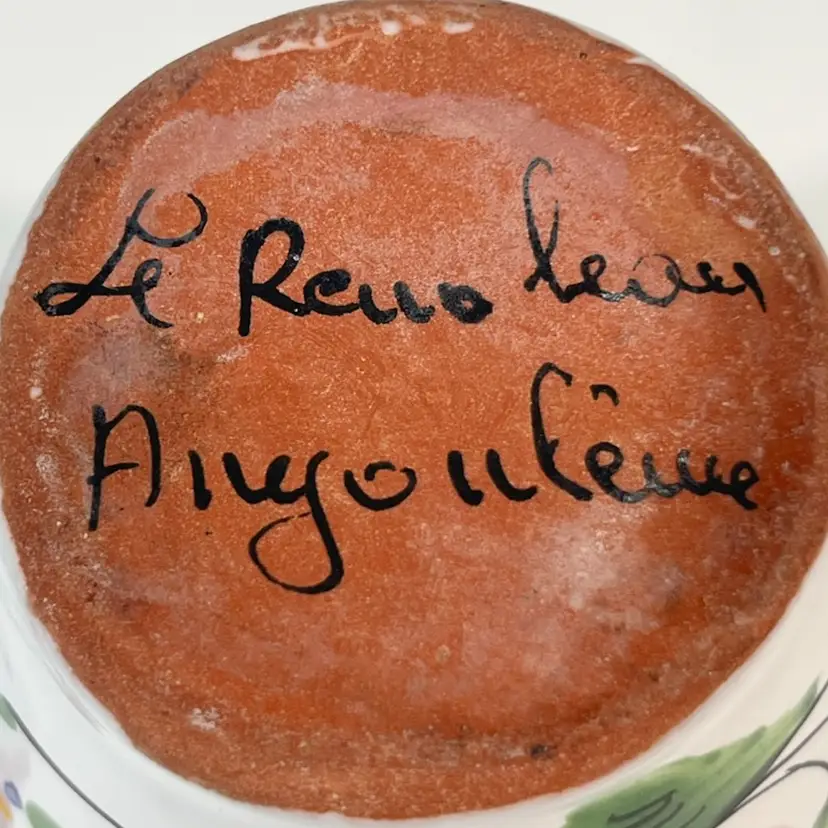 Le Renoleau
Angoulême